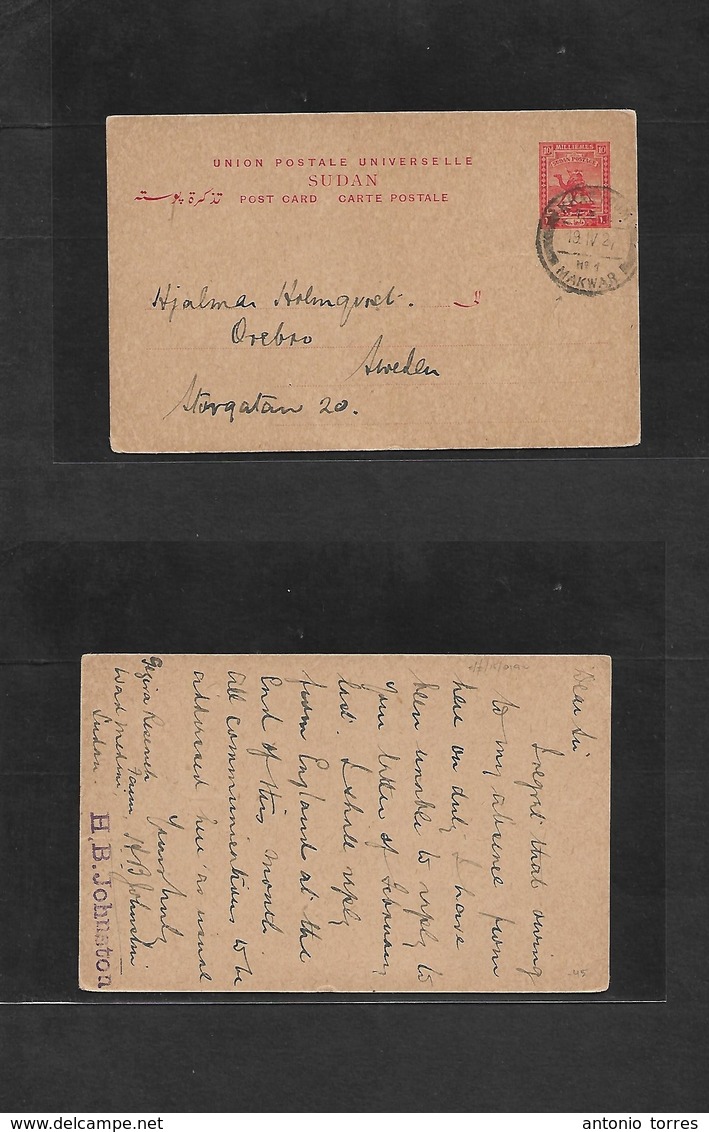 UNION POSTALE UNIVERSELLE
SUDAN
تذكرة پوسته POST CARD CARTE POSTALE
10 MILLIEMES 10
SUDAN POSTAGE
19 IV 2
Nº 1
MAKWAR
Hjalmar Holmqvist.
Orebro
Sweden
Storgatan 20.
Dear Sir
I regret that owing
to my absence from
here on duty I have
been unable to reply to
your letter of February
last. I shall reply
from England at the
end of this month
All communications to be
addressed here as usual
Yours truly
H B Johnston
Gezira Research
Farm,
Wad Medani,
Sudan
H. B. Johnston
.45
www.delcampe.net
antonio torres